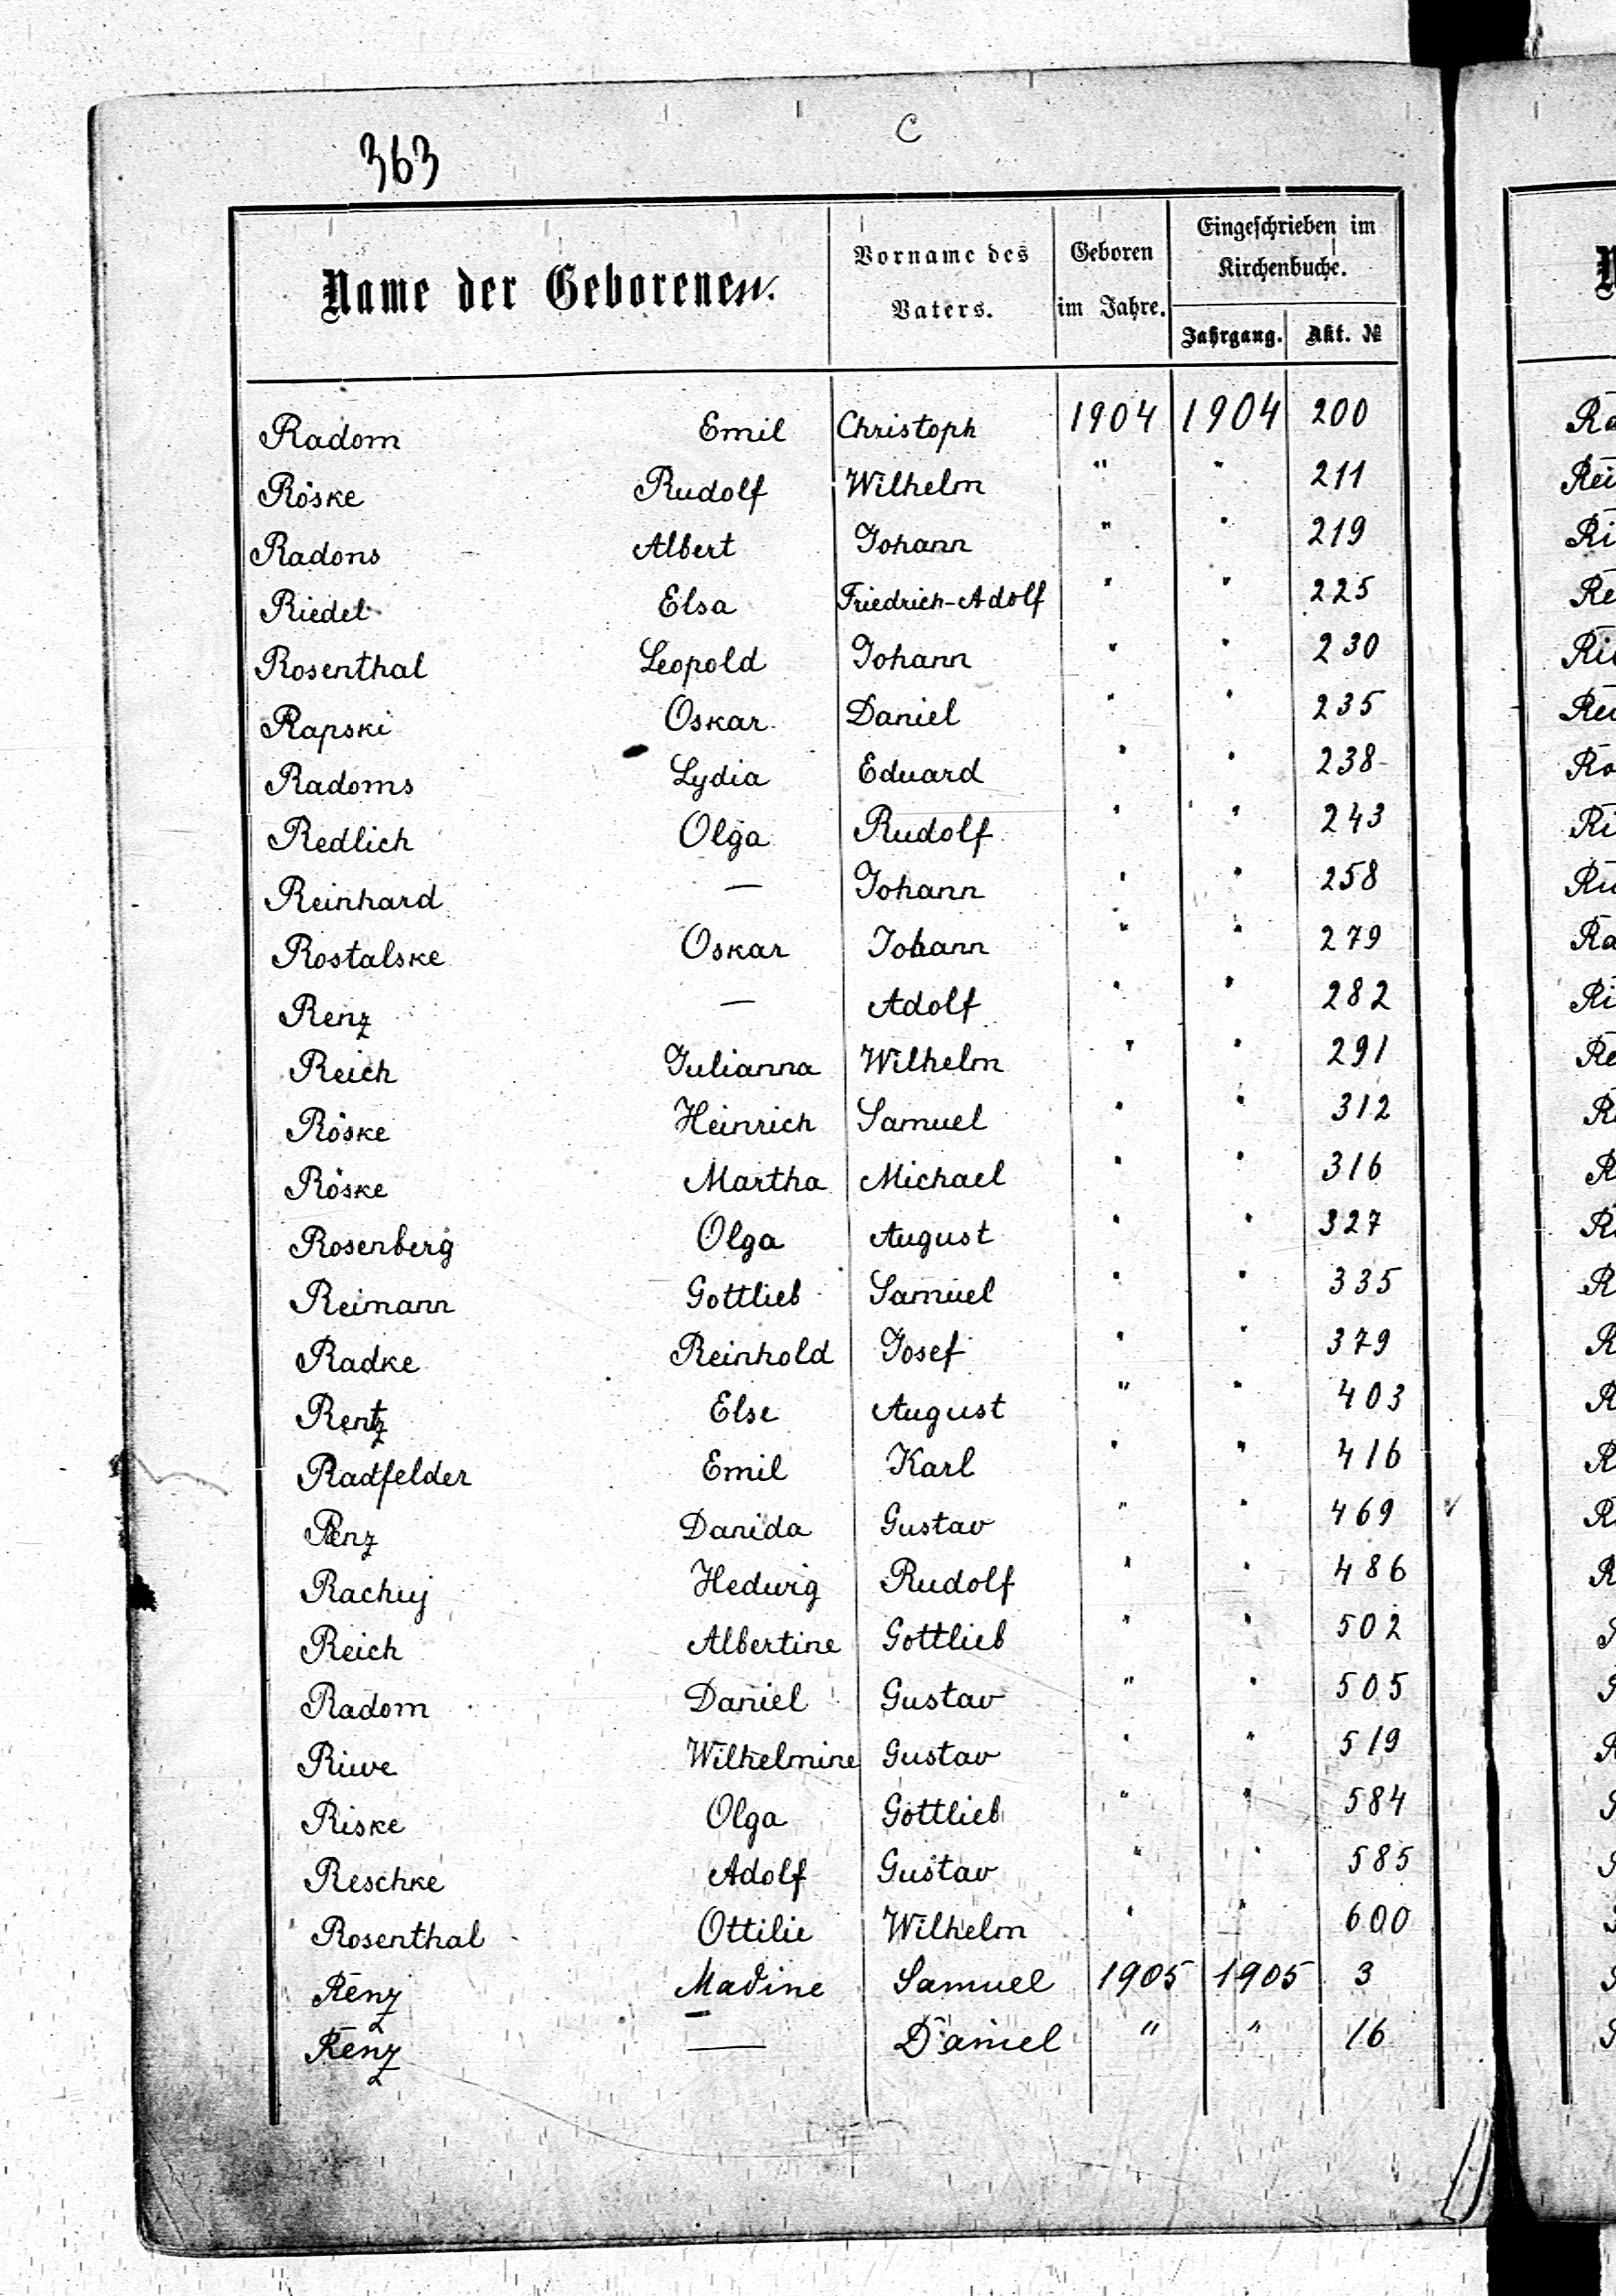 363 C
Name der Geborenen. Vorname des Vaters. Geboren im Jahre. Eingeschrieben im Kirchenbuche.
Jahrgang. Akt. №
Radom Emil Christoph 1904 1904 200
Röske Rudolf Wilhelm " " 211
Radons Albert Johann " " 219
Riedel Elsa Friedrich-Adolf " " 225
Rosenthal Leopold Johann " " 230
Rapski Oskar Daniel " " 235
Radoms Lydia Eduard " " 238
Redlich Olga Rudolf " " 243
Reinhard — Johann " " 258
Rostalske Oskar Johann " " 279
Renz — Adolf " " 282
Reich Julianna Wilhelm " " 291
Röske Heinrich Samuel " " 312
Röske Martha Michael " " 316
Rosenberg Olga August " " 327
Reimann Gottlieb Samuel " " 335
Radke Reinhold Josef " " 379
Rentz Else August " " 403
Radfelder Emil Karl " " 416
Renz Danida Gustav " " 469
Rachuj Hedwig Rudolf " " 486
Reich Albertine Gottlieb " " 502
Radom Daniel Gustav " " 505
Riwe Wilhelmine Gustav " " 519
Riske Olga Gottlieb " " 584
Reschke Adolf Gustav " " 585
Rosenthal Ottilie Wilhelm " " 600
Renz Samuel 1905 1905 3
Renz — Daniel " " 16